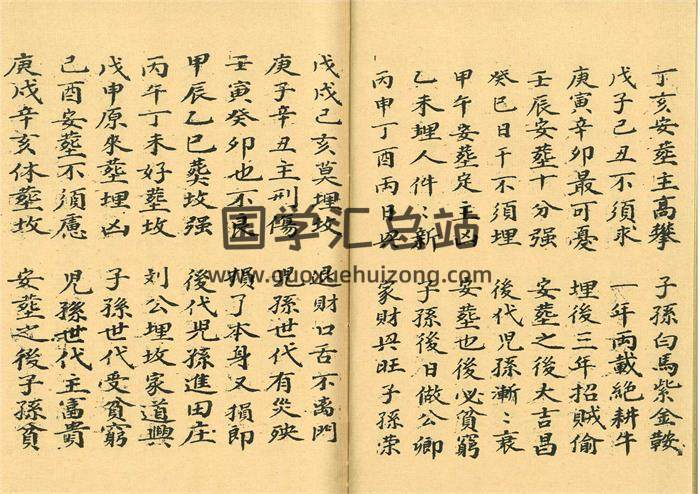 丁亥安塟主高攀　子孫白馬紫金鞍
戊子己丑不須求　一年両載絕耕牛
庚寅辛卯最可憂　埋後三年招賊偷
壬辰安塟十分强　安塟之後大吉昌
癸巳日干不須埋　後代兒孫漸〻衰
甲午安塟定主凶　安塟也後必貧窮
乙未埋人件〻新　子孫後日做公卿
丙申丁酉丙日兴　家財興旺子孫荣
戊戌己亥莫埋坟　退財口舌不离門
庚子辛丑主刑傷　児孫世代有災殃
壬寅癸卯也不良　損了本身又損郎
甲辰乙巳葬坟强　後代児孫進田庄
丙午丁未好塟坟　刘公埋坟家道興
戊申原來塟埋凶　子孫世代受貧窮
己酉安塟不須慮　児孫世代主富貴
庚戌辛亥休塟坟　安塟之後子孫貧
国学汇总站
www.guoxuehuizong.com